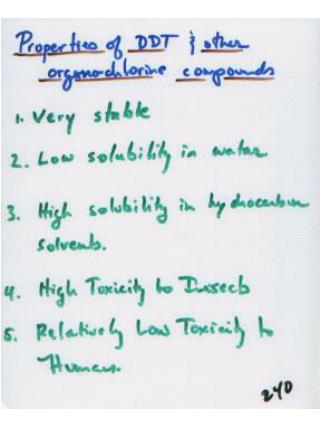 Properties of DDT & other
organo-chlorine compounds
1. Very stable
2. Low solubility in water
3. High solubility in hydrocarbon
solvents.
4. High Toxicity to Insects
5. Relatively Low Toxicity to
Humans.
240